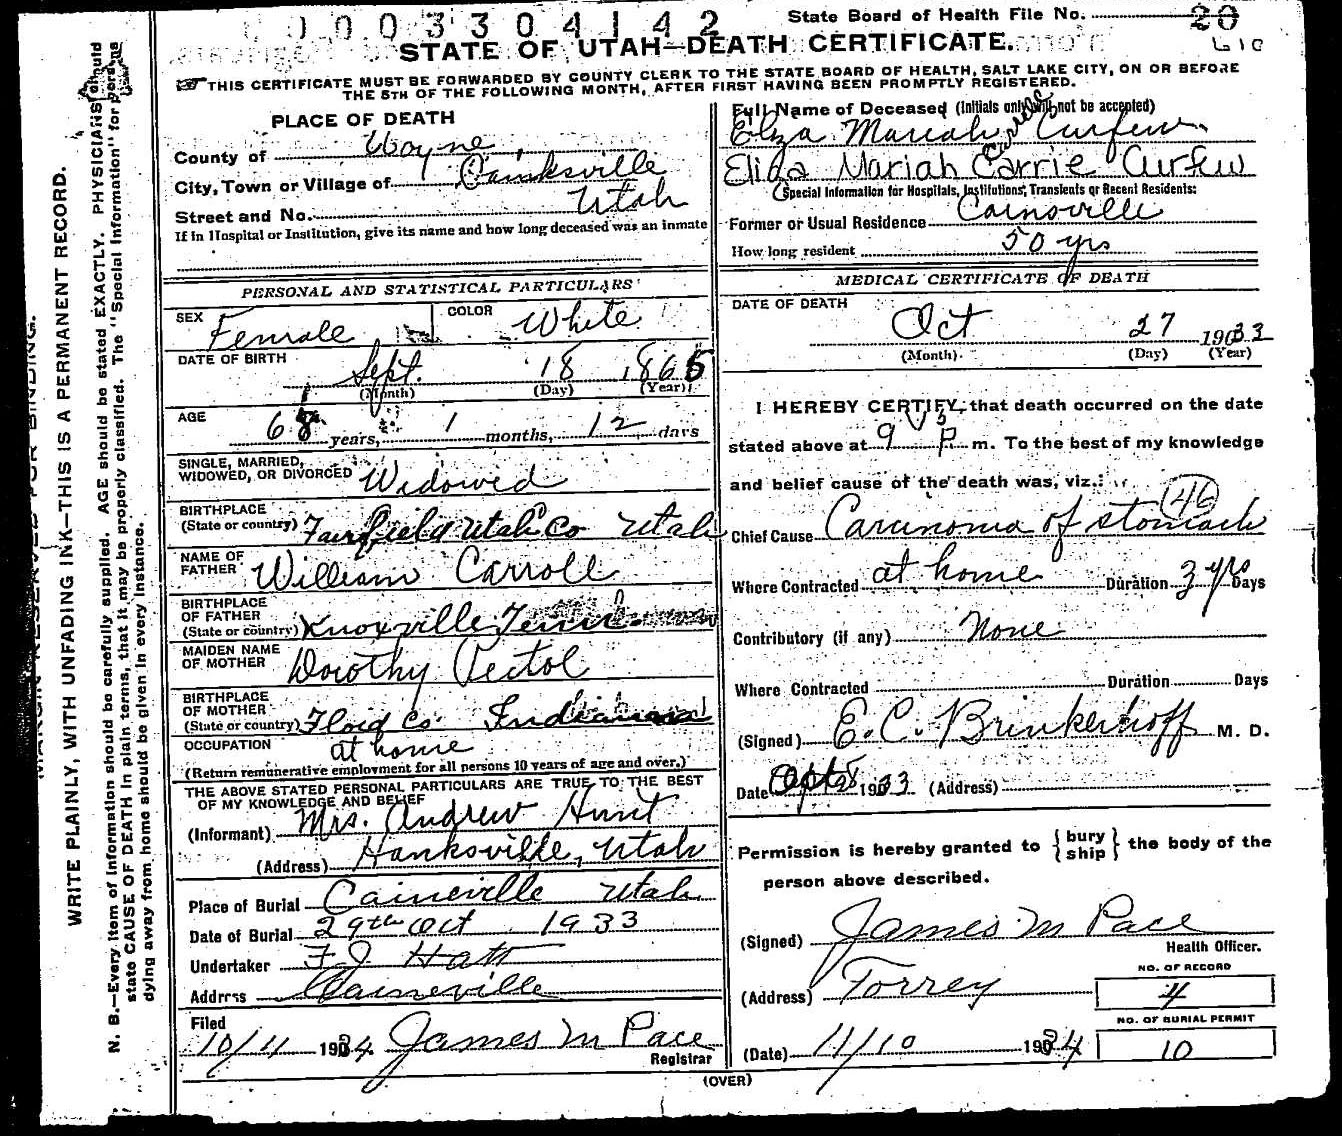 0 0 0 3 3 0 4 1 4 2
State Board of Health File No. 20
610
STATE OF UTAH—DEATH CERTIFICATE.
THIS CERTIFICATE MUST BE FORWARDED BY COUNTY CLERK TO THE STATE BOARD OF HEALTH, SALT LAKE CITY, ON OR BEFORE
THE 5TH OF THE FOLLOWING MONTH, AFTER FIRST HAVING BEEN PROMPTLY REGISTERED.
PLACE OF DEATH
County of Wayne
City, Town or Village of
Utah
Street and No.
If in Hospital or Institution, give its name and how long deceased was an inmate
PERSONAL AND STATISTICAL PARTICULARS
SEX Female
COLOR White
DATE OF BIRTH
Sept. 18 1865
(Month) (Day) (Year)
AGE
68 years, 1 months, 12 days
SINGLE, MARRIED,
WIDOWED, OR DIVORCED Widowed
BIRTHPLACE
(State or country) Fairfield Utah Co Utah
NAME OF
FATHER William Carroll
BIRTHPLACE
OF FATHER
(State or country) Knoxville Tenn.
MAIDEN NAME
OF MOTHER Dorothy Pectol
BIRTHPLACE
OF MOTHER
(State or country) Floyd Co Indiana
OCCUPATION at home
(Return remunerative employment for all persons 10 years of age and over.)
THE ABOVE STATED PERSONAL PARTICULARS ARE TRUE TO THE BEST
OF MY KNOWLEDGE AND BELIEF
(Informant) Mrs. Andrew Hunt
(Address) Hanksville, Utah
Place of Burial Caineville Utah
Date of Burial 29th Oct 1933
Undertaker F J Hatt
Address Caineville
Filed
10/4 1934 James M Pace
Registrar
(OVER)
Full Name of Deceased (Initials only will not be accepted)
Eliza Mariah Carrie Curfew
Eliza Mariah Carrie Curfew
(Special Information for Hospitals, Institutions, Transients or Recent Residents:
Former or Usual Residence Cainsville
How long resident 50 yrs
MEDICAL CERTIFICATE OF DEATH
DATE OF DEATH
Oct 27 1933
(Month) (Day) (Year)
I HEREBY CERTIFY, that death occurred on the date
stated above at 9 P. m. To the best of my knowledge
and belief cause of the death was, viz.:
46
Chief Cause Carcinoma of stomach
Where Contracted at home Duration 3 yrs Days
Contributory (if any) None
Where Contracted Duration Days
(Signed) E. C. Brinkerhoff M. D.
Date 1933 (Address)
Permission is hereby granted to { bury ship } the body of the
person above described.
(Signed) James M Pace
Health Officer.
(Address) Torrey
NO. OF RECORD
4
NO. OF BURIAL PERMIT
(Date) 11/10 1934 10
MARGIN RESERVED FOR BINDING.
WRITE PLAINLY, WITH UNFADING INK—THIS IS A PERMANENT RECORD.
N. B.—Every item of information should be carefully supplied. AGE should be stated EXACTLY. PHYSICIANS should
state CAUSE OF DEATH in plain terms, that it may be properly classified. The "Special Information" for persons
dying away from home should be given in every instance.